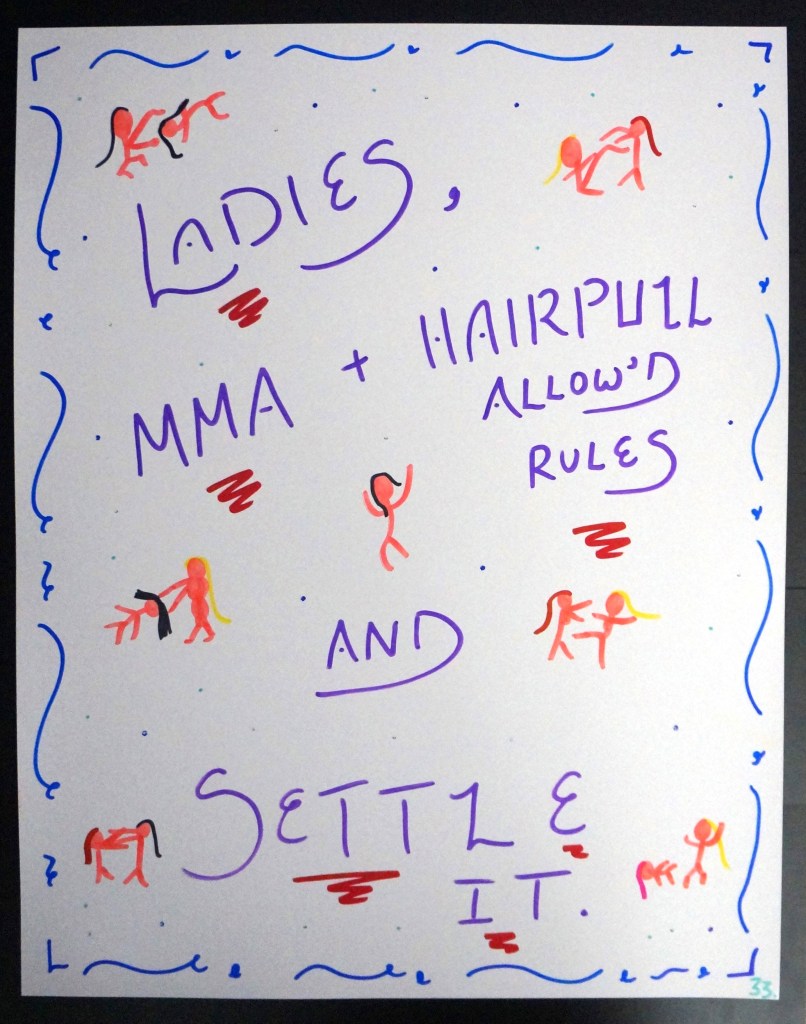 LADIES,
MMA + HAIRPULL
ALLOW'D
RULES
AND
SETTLE
IT.
33.